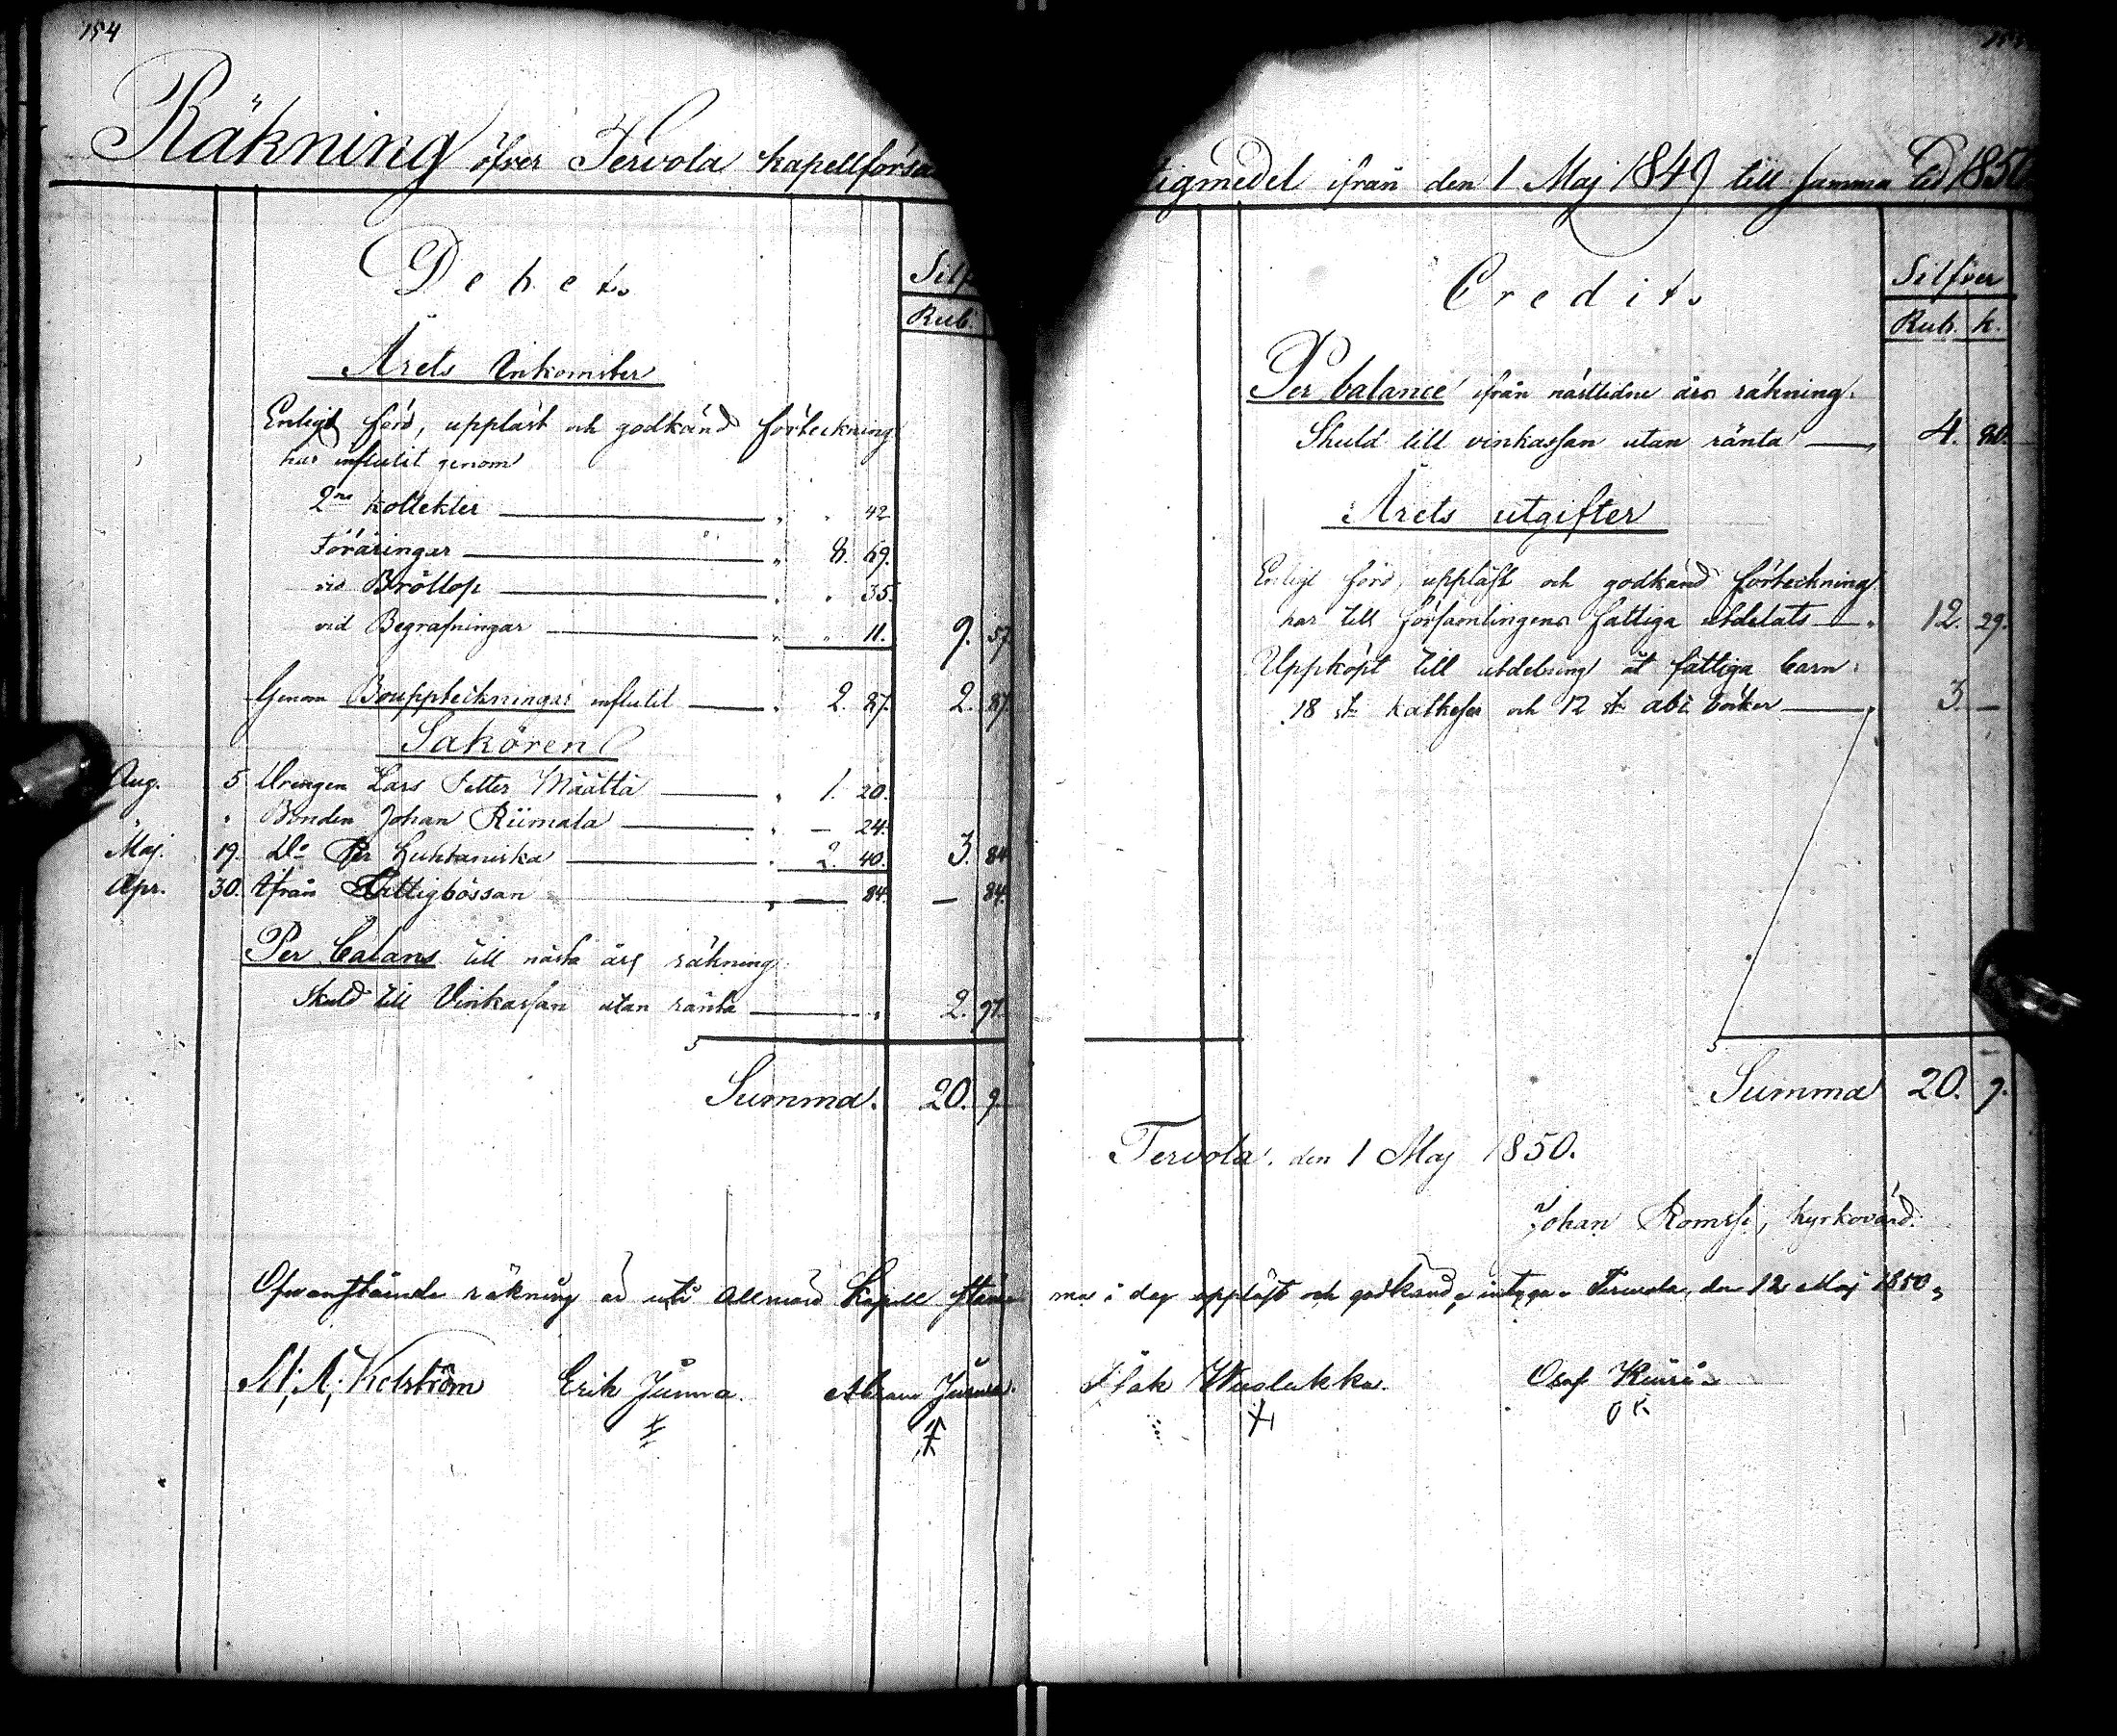 154
Räkning öfver Tervola kapellförsa
Debet.
Silf
Rub.
Årets Inkomster
Enligt förd, uppläst och godkänd förteckning
har influtit genom
2ne kollekter " " 42
Föräringar " 8. 69.
vid Bröllop " " 35.
vid Begrafningar " " 11. 9. 57
Genom Bouppteckningar influtit " 2. 87. 2. 87
Sakören
Aug. 5 Drengen Lars Petter Määttä " 1. 20.
" " Bonden Johan Riimala " — 24.
Maj. 19. Do Per Luhtaniska " 2. 40. 3. 84
Apr. 30. Ifrån Fattigbössan " — 84. — 84.
Per balans till nästa års räkning
Skuld till Vinkassan utan ränta " 2. 97.
Summa. 20. 9.
Ofvanstående räkning är uti allmän Kapell stäm
M. A. Kolström Erik Junna. Abram Junna.
tigmedel ifrån den 1 Maj 1849 till samma tid 1850
Credit.
Silfver
Rub. k.
Per balance ifrån nästledne års räkning.
Skuld till vinkassan utan ränta " 4. 80.
Årets utgifter
Enligt förd, uppläst och godkänd förteckning
har till församlingens fattiga utdelats " 12. 29.
Uppköpt till utdelning åt fattiga barn:
18 st katheser och 12 st abc böcker " 3. —
Summa 20. 9.
Tervola. den 1 Maj 1850.
Johan Romsi, kyrkovärd.
ma i dag uppläst och godkänd, intyga. Tervola, den 12 Maj 1850.
Isak Wuolukka. Olof Kuuri
O K